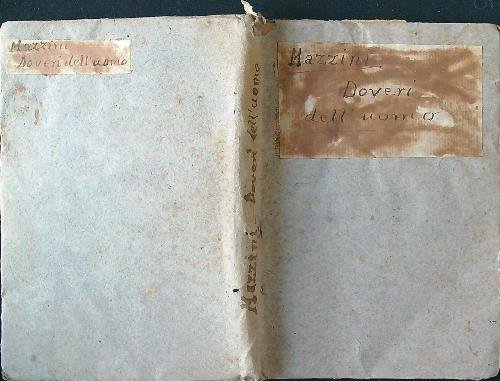 Mazzini
Doveri dell'uomo
Mazzini - Doveri dell'uomo
Mazzini
Doveri
dell'uomo